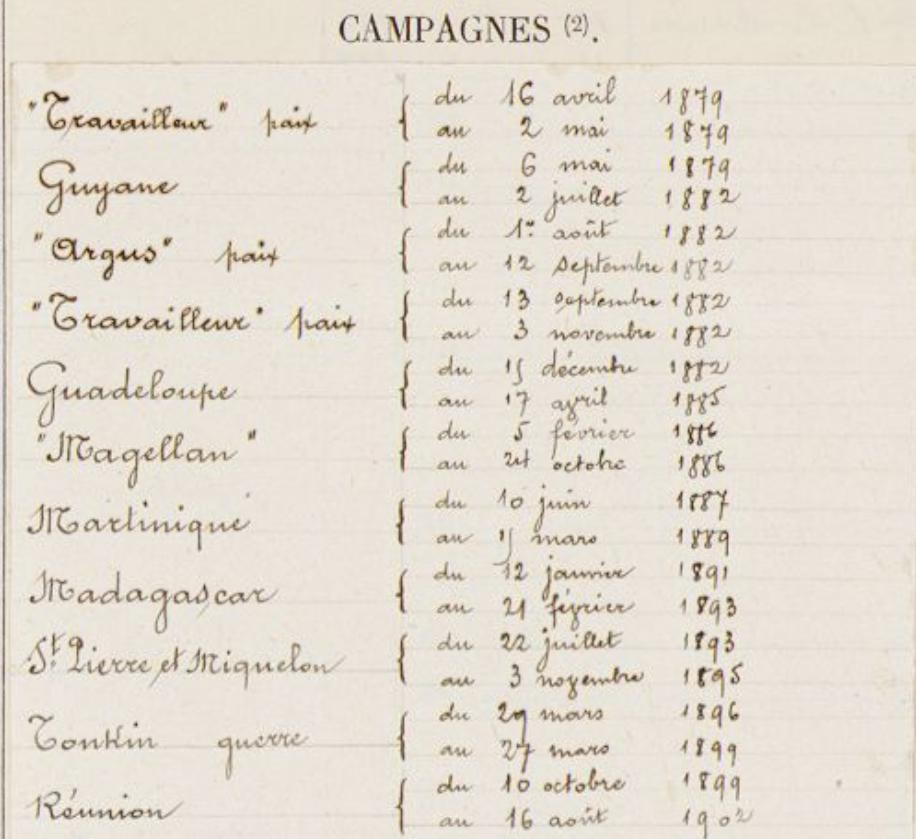 CAMPAGNES (2).
"Travailleur" paix { du 16 avril 1879
au 2 mai 1879
Guyane { du 6 mai 1879
au 2 juillet 1882
"Argus" paix { du 1er août 1882
au 12 septembre 1882
"Travailleur" paix { du 13 septembre 1882
au 3 novembre 1882
Guadeloupe { du 15 décembre 1882
au 17 avril 1885
"Magellan" { du 5 février 1886
au 24 octobre 1886
Martinique { du 10 juin 1887
au 15 mars 1889
Madagascar { du 12 janvier 1891
au 21 février 1893
St. Pierre et Miquelon { du 22 juillet 1893
au 3 novembre 1895
Tonkin guerre { du 29 mars 1896
au 27 mars 1899
Réunion { du 10 octobre 1899
au 16 août 1902